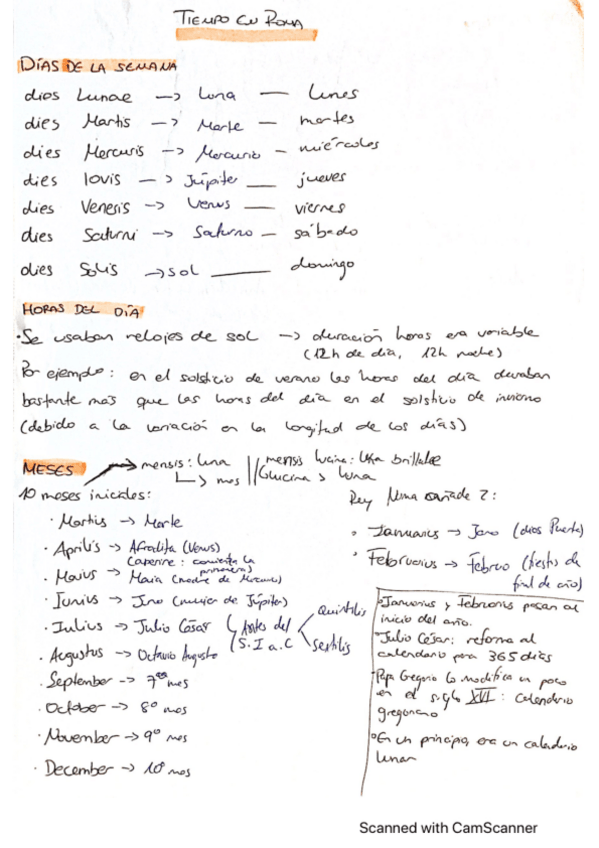 TIEMPO EN ROMA
DÍAS DE LA SEMANA
dios Lunae -> Luna — lunes
dies Martis -> Marte — martes
dies Mercuris -> Mercurio — miércoles
dies Iovis —> Júpiter — jueves
dies Veneris -> Venus — viernes
dies Saturni -> Saturno — sábado
dies Solis -> sol — domingo
HORAS DEL DÍA
· Se usaban relojes de sol -> duración horas era variable
(12h de día, 12h noche)
Por ejemplo: en el solsticio de verano las horas del día duraban
bastante más que las horas del día en el solsticio de invierno
(debido a la variación en la longitud de los días)
MESES -> mensis: luna || mensis lucina: luna brillante
-> mes || Glucina y luna
10 meses iniciales:
· Martius -> Marte
· Aprilis -> Afrodita (Venus)
Caperire: comienza la primavera)
· Maius -> Maia (madre de Mercurio)
· Iunius -> Juno (mujer de Júpiter)
· Iulius -> Julio César
· Augustus -> Octavio Augusto
Antes del S. I a.C
Quintilis
Sextilis
· September -> 7º mes
· October -> 8º mes
· November -> 9º mes
· December -> 10º mes
Rey Numa añade 2:
· Ianuarius -> Jano (dios Puerta)
· Februarius -> Febrero (fiesta de
final de año)
· Ianuarius y Februarius pasan al
inicio del año.
· Julio César: reforma al
calendario para 365 días
· Papa Gregorio lo modifica un poco
en el siglo XVI: calendario
gregoriano
· En un principio, era un calendario
lunar
Scanned with CamScanner